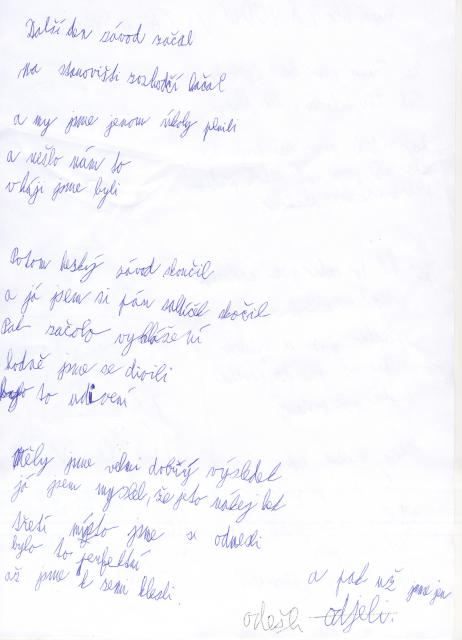 Další den závod začal
Na stanovišti rozhodčí kačal
a my jsme jenom úkoly plnili
a nešlo nám to
v háji jsme byli
Potom hezký závod skončil
a já jsem si pán skočil
Pak začalo vyhlášení
hodně jsme se divili
bylo to udivení
Měly jsme velmi dobrý výsledek
já jsem myslel, že je to nákej
třetí místo jsme si odnesli
bylo to perfektní
až jsme k zemi klesli.
a pak už jsme jen
odešli odjeli.